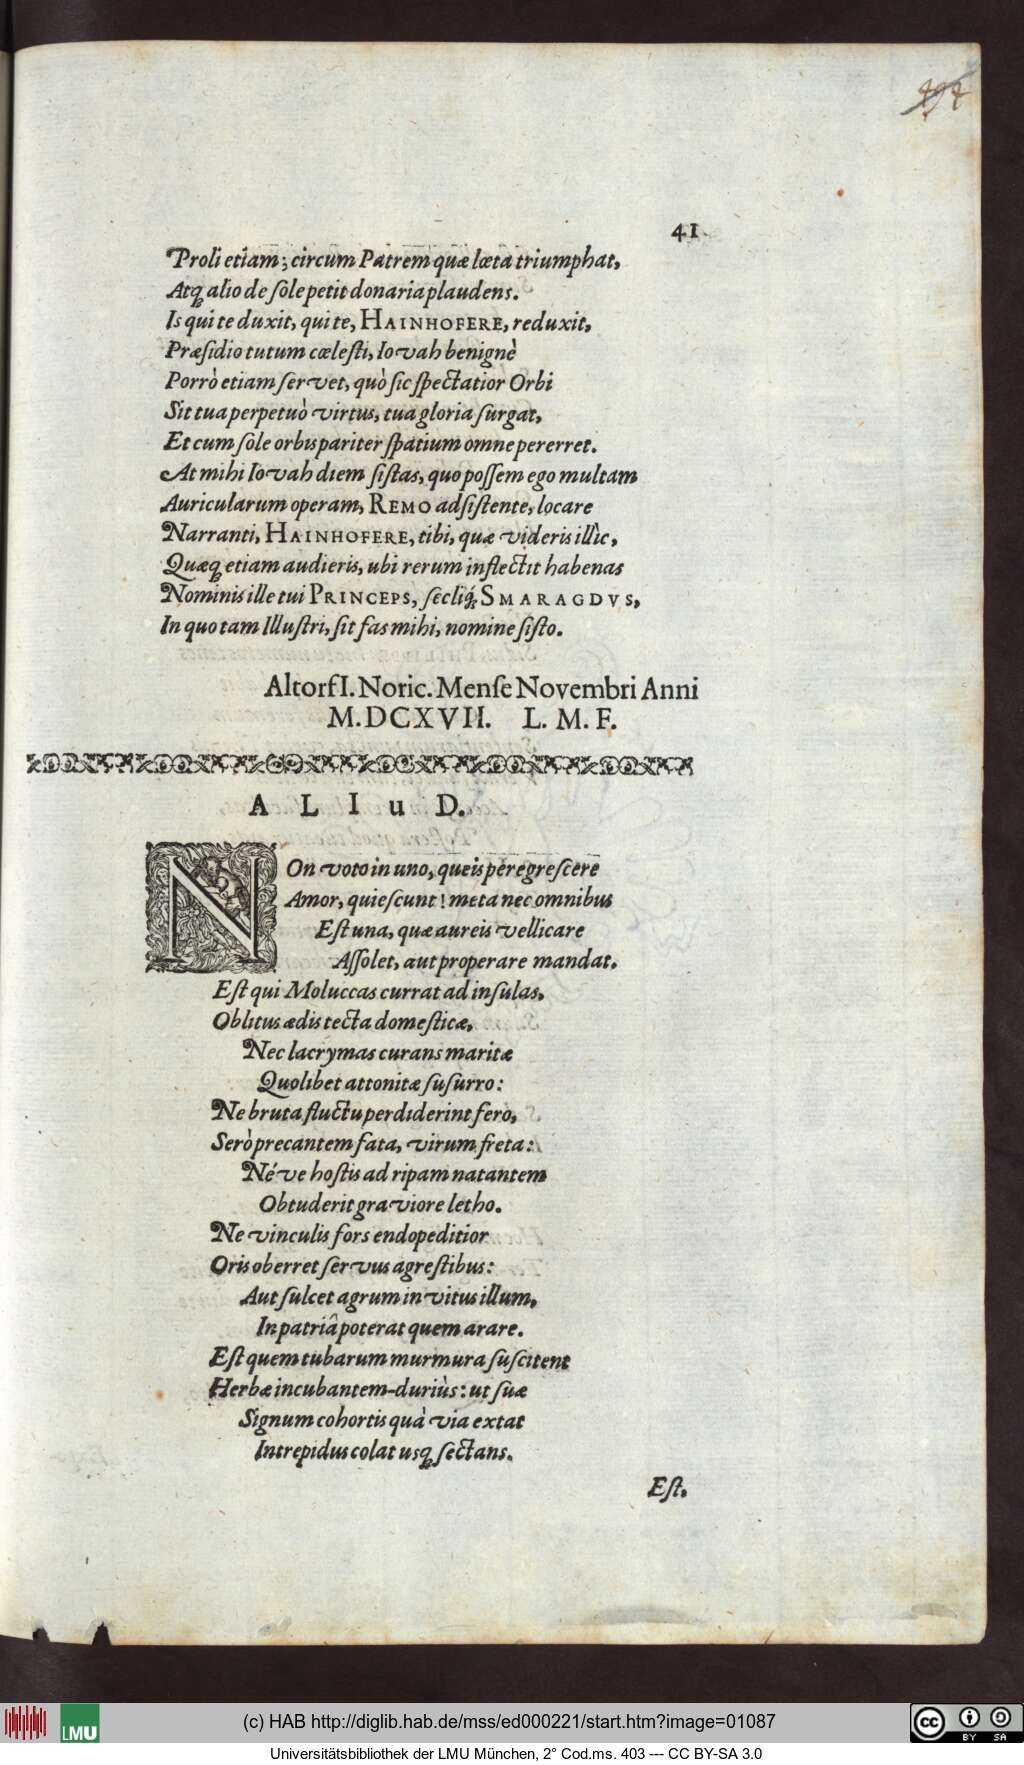 494
41
Proli etiam; circum Patrem quæ læta triumphat,
Atq́ alio de ſole petit donaria plaudens.
Is qui te duxit, qui te, HAINHOFERE, reduxit,
Præſidio tutum cœleſti, Iovah benignè
Porrò etiam ſervet, quò ſic ſpectatior Orbi
Sit tua perpetuò virtus, tua gloria ſurgat,
Et cum ſole orbis pariter ſpatium omne pererret.
At mihi Iovah diem ſiſtas, quo poſſem ego multam
Auricularum operam, REMO adſiſtente, locare
Narranti, HAINHOFERE, tibi, quæ videris illìc,
Quæq́ etiam audieris, ubi rerum inflectit habenas
Nominis ille tui PRINCEPS, ſecliq́ SMARAGDVS,
In quo tam Illuſtri, ſit fas mihi, nomine ſiſto.
AltorfI. Noric. Menſe Novembri Anni
M.DCXVII. L. M. F.
ALIuD.
NOn voto in uno, queis peregreſcere
Amor, quieſcunt! meta nec omnibus
Eſt una, quæ aureis vellicare
Aſſolet, aut properare mandat.
Eſt qui Moluccas currat ad inſulas,
Oblitus ædis tecta domeſticæ,
Nec lacrymas curans maritæ
Quolibet attonitæ ſuſurro:
Ne bruta fluctu perdiderint fero,
Serò precantem fata, virum freta:
Néve hoſtis ad ripam natantem
Obtuderit graviore letho.
Ne vinculis fors endopeditior
Oris oberret ſervus agreſtibus:
Aut ſulcet agrum invitus illum,
In patriâ poterat quem arare.
Eſt quem tubarum murmura ſuſcitent
Herbæ incubantem-duriùs: ut ſuæ
Signum cohortis quà via extat
Intrepidus colat uſq́ ſectans.
Eſt,
(c) HAB http://diglib.hab.de/mss/ed000221/start.htm?image=01087
LMU
cc BY SA
Universitätsbibliothek der LMU München, 2° Cod.ms. 403 --- CC BY-SA 3.0